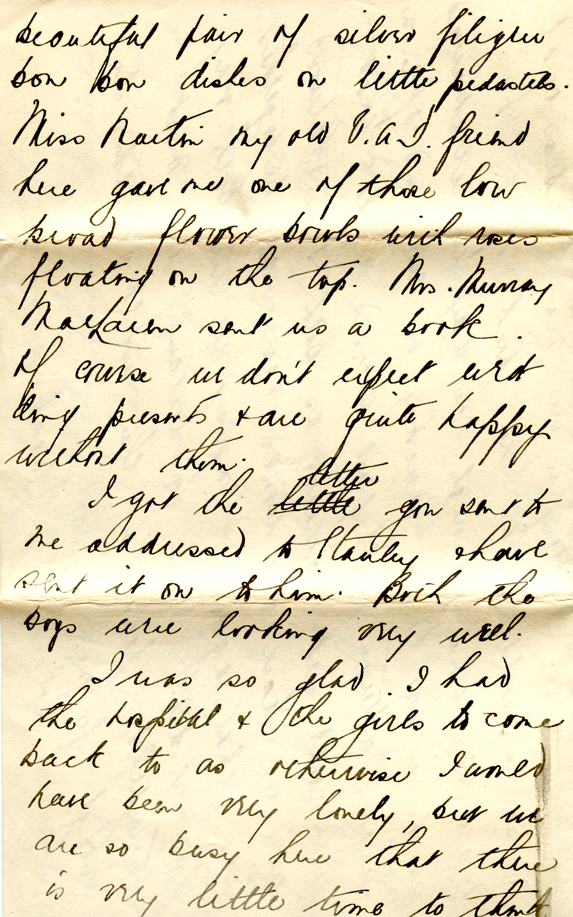 beautiful pair of silver filigree
bon bon dishes on little pedastels.
Miss Martin my old V.A.D. friend
here gave me one of those low
broad flower bowls with roses
floating on the top. Mrs. Murray
MacLaren sent us a book.
Of course we don't expect wed
ding presents & are quite happy
without them.
letter
I got the little you sent to
me addressed to Stanley & have
sent it on to him. Both the
boys were looking very well.
I was so glad I had
the hospital & the girls to come
back to as otherwise I would
have been very lonely, but we
are so busy here that there
is very little time to think